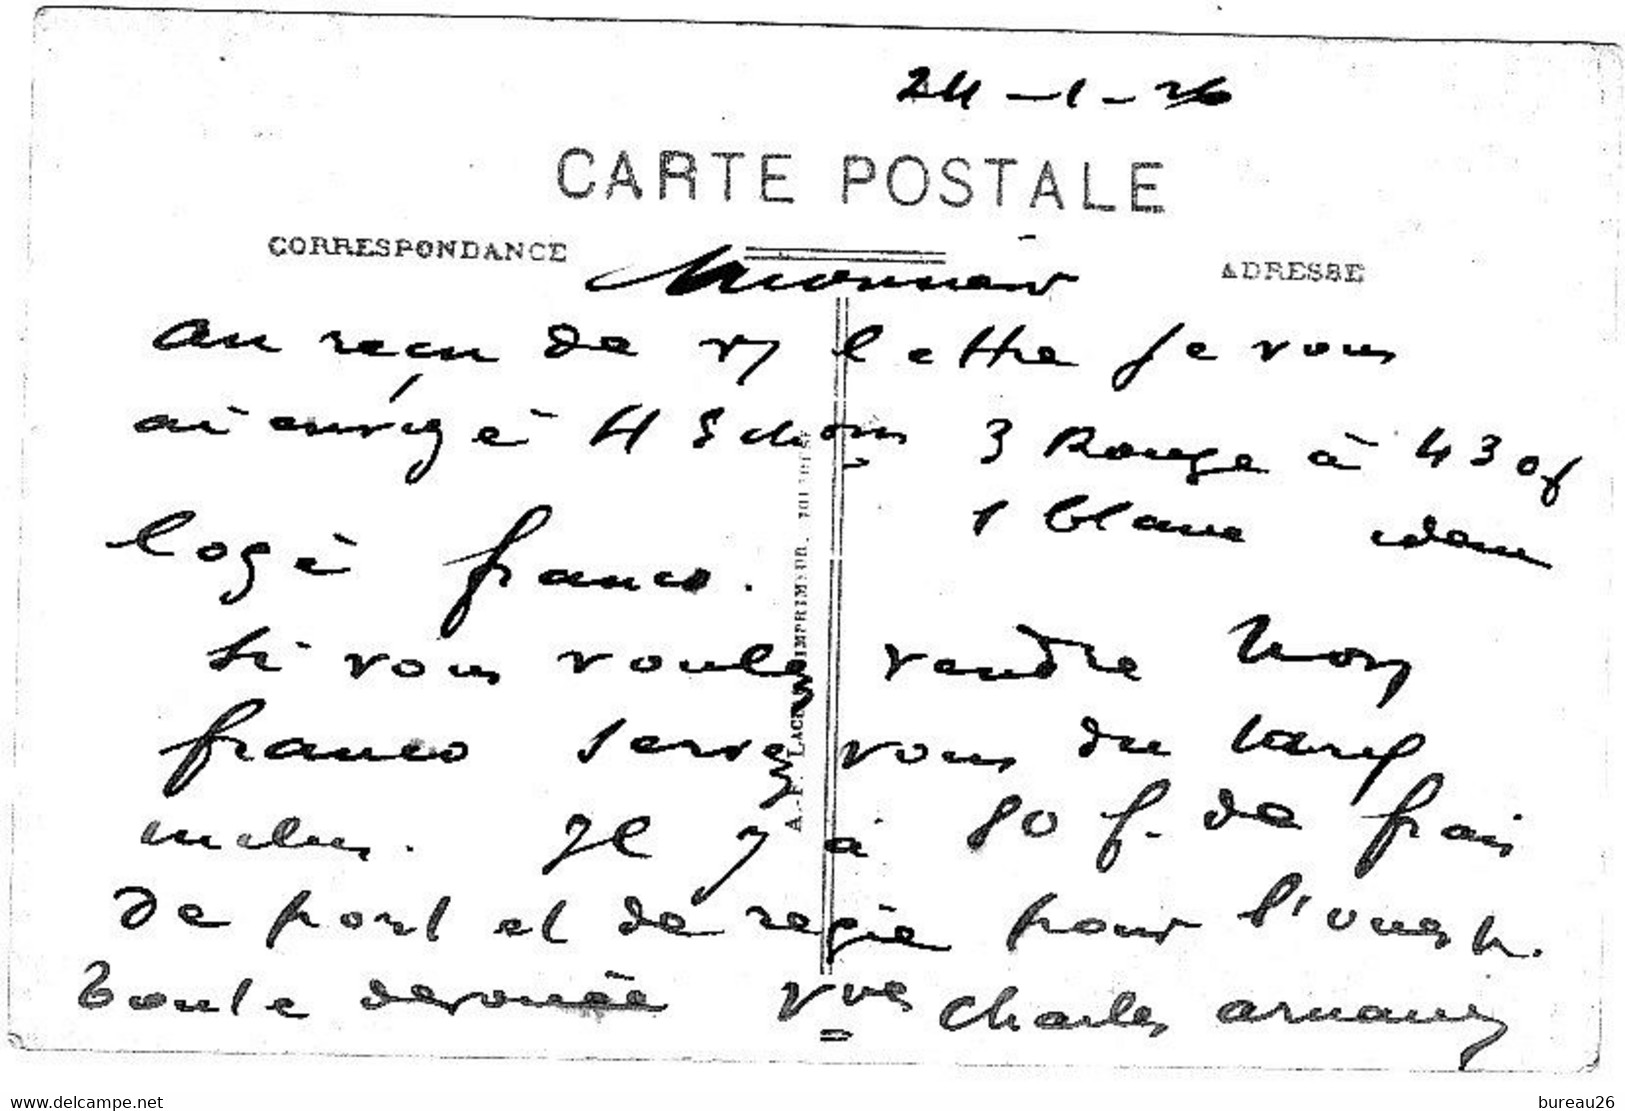 24-1-26
CARTE POSTALE
CORRESPONDANCE
ADRESSE
Monsieur
au reçu de v/ lettre je vous
ai envoyé 4 Echons 3 Rouge à 430f
1 blanc idem
logé franco.
Si vous voulez vendre non
franco servez vous du tarif
inclus. Il y a 80 f. de frais
de port et de régie pour l'ouest.
Toute dévouée Vve Charles Arnaud
IMPRIMEUR
www.delcampe.net
bureau26